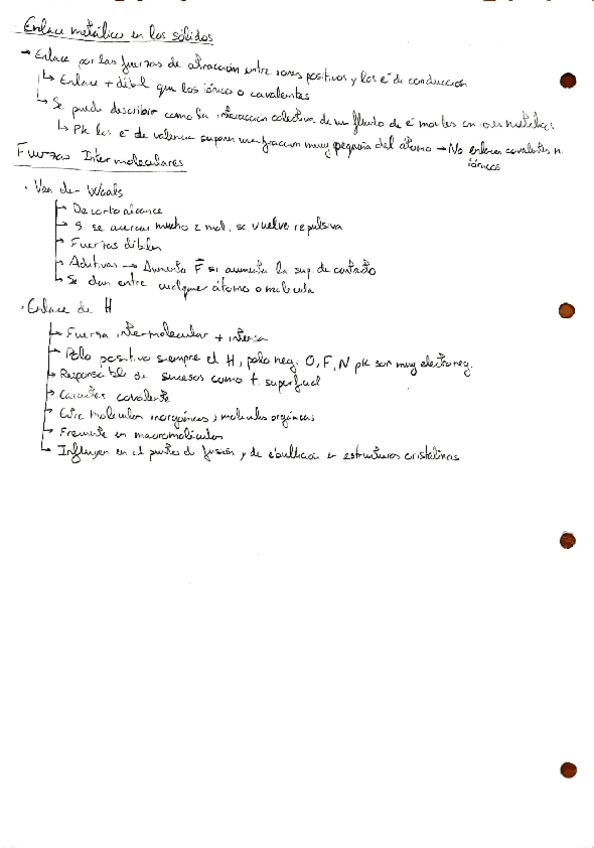 Enlace metálico en los sólidos
→ Enlace por las fuerzas de atracción entre iones positivos y los e⁻ de conducción
↳ Enlace + débil que los iónico o covalentes
↳ Se puede describir como la interacción colectiva de un fluido de e⁻ móviles con iones metálicos
↳ Pk los e⁻ de valencia suponen una fracción muy pequeña del átomo → No enlaces covalentes n.
iónicos
Fuerzas Intermoleculares
· Van der-Waals
→ De corto alcance
→ Si se acercan mucho 2 mol. se vuelve repulsiva
→ Fuerzas débiles
→ Aditivas → Aumenta F si aumenta la sup. de contacto
↳ Se dan entre cualquier átomo o molécula
· Enlace de H
→ Fuerza intermolecular + intensa
→ Polo positivo siempre el H, polo neg. O, F, N pk son muy electroneg.
→ Responsable de sucesos como t. superficial
→ Carácter covalente
→ Entre moléculas inorgánicas y moléculas orgánicas
→ Frecuente en macromoléculas
↳ Influyen en el punto de fusión y de ebullición en estructuras cristalinas